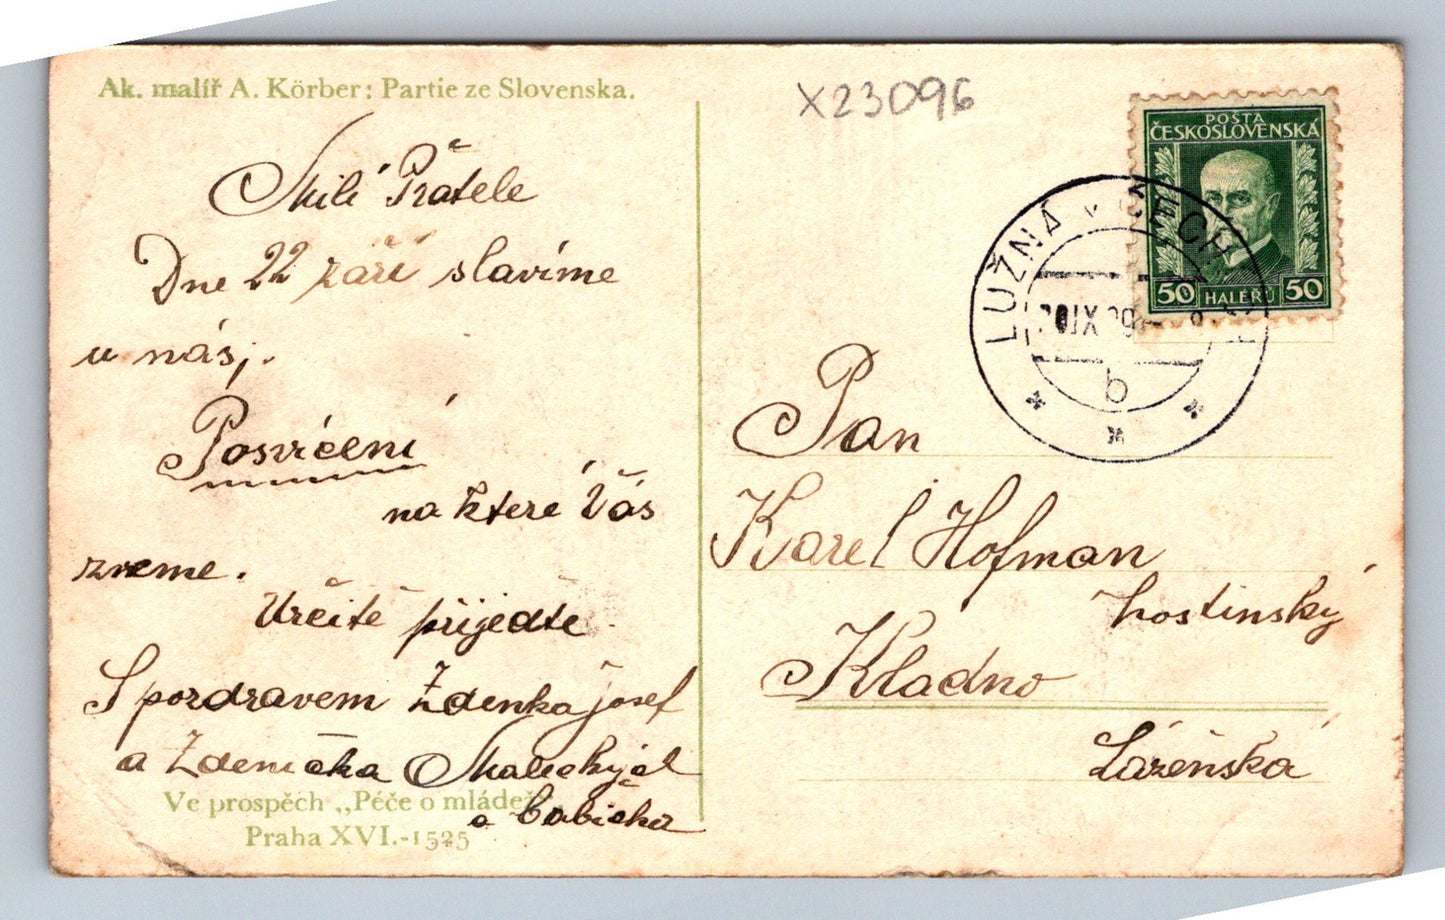 Ak. malíř A. Körber: Partie ze Slovenska.
X23096
Milí Přátele
Dne 22 září slavíme
u nás,.
Posvícení
na které Vás
zveme.
Určitě přijedte
S pozdravem Zdenka Josef
a Zdenička
a babička
Ve prospěch „Péče o mládež“
Praha XVI.-1525
POŠTA
ČESKOSLOVENSKÁ
50 HALÉŘŮ 50
LUŽNÁ v ČECH
IX
b
Pan
Karel Hofman
hostinský
Kladno
Lázeňská